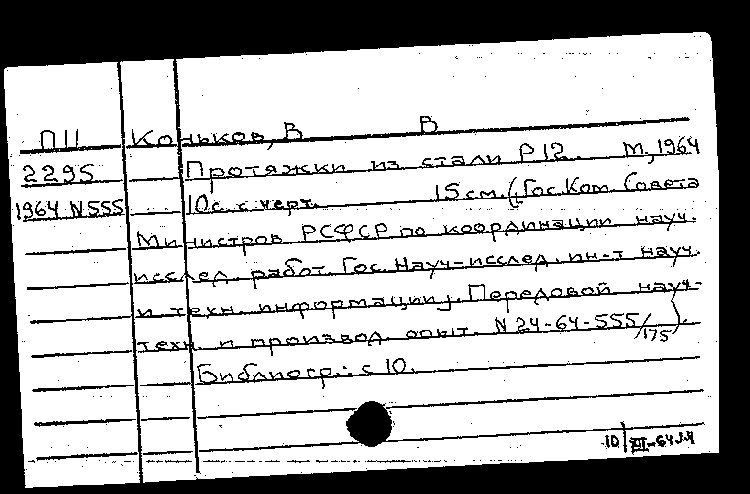 П11 Коньков, В В
2295 Протяжки из стали Р12. М., 1964
1964 N555 10с. с черт. 15 см. (Гос. Ком. Совета
Министров РСФСР по координации науч.
исслед. работ. Гос. Науч-исслед. ин-т науч.
и техн. информации). Передовой науч-
техн. и производ. опыт. N 24-64-555/175).
Библиогр.: с 10.